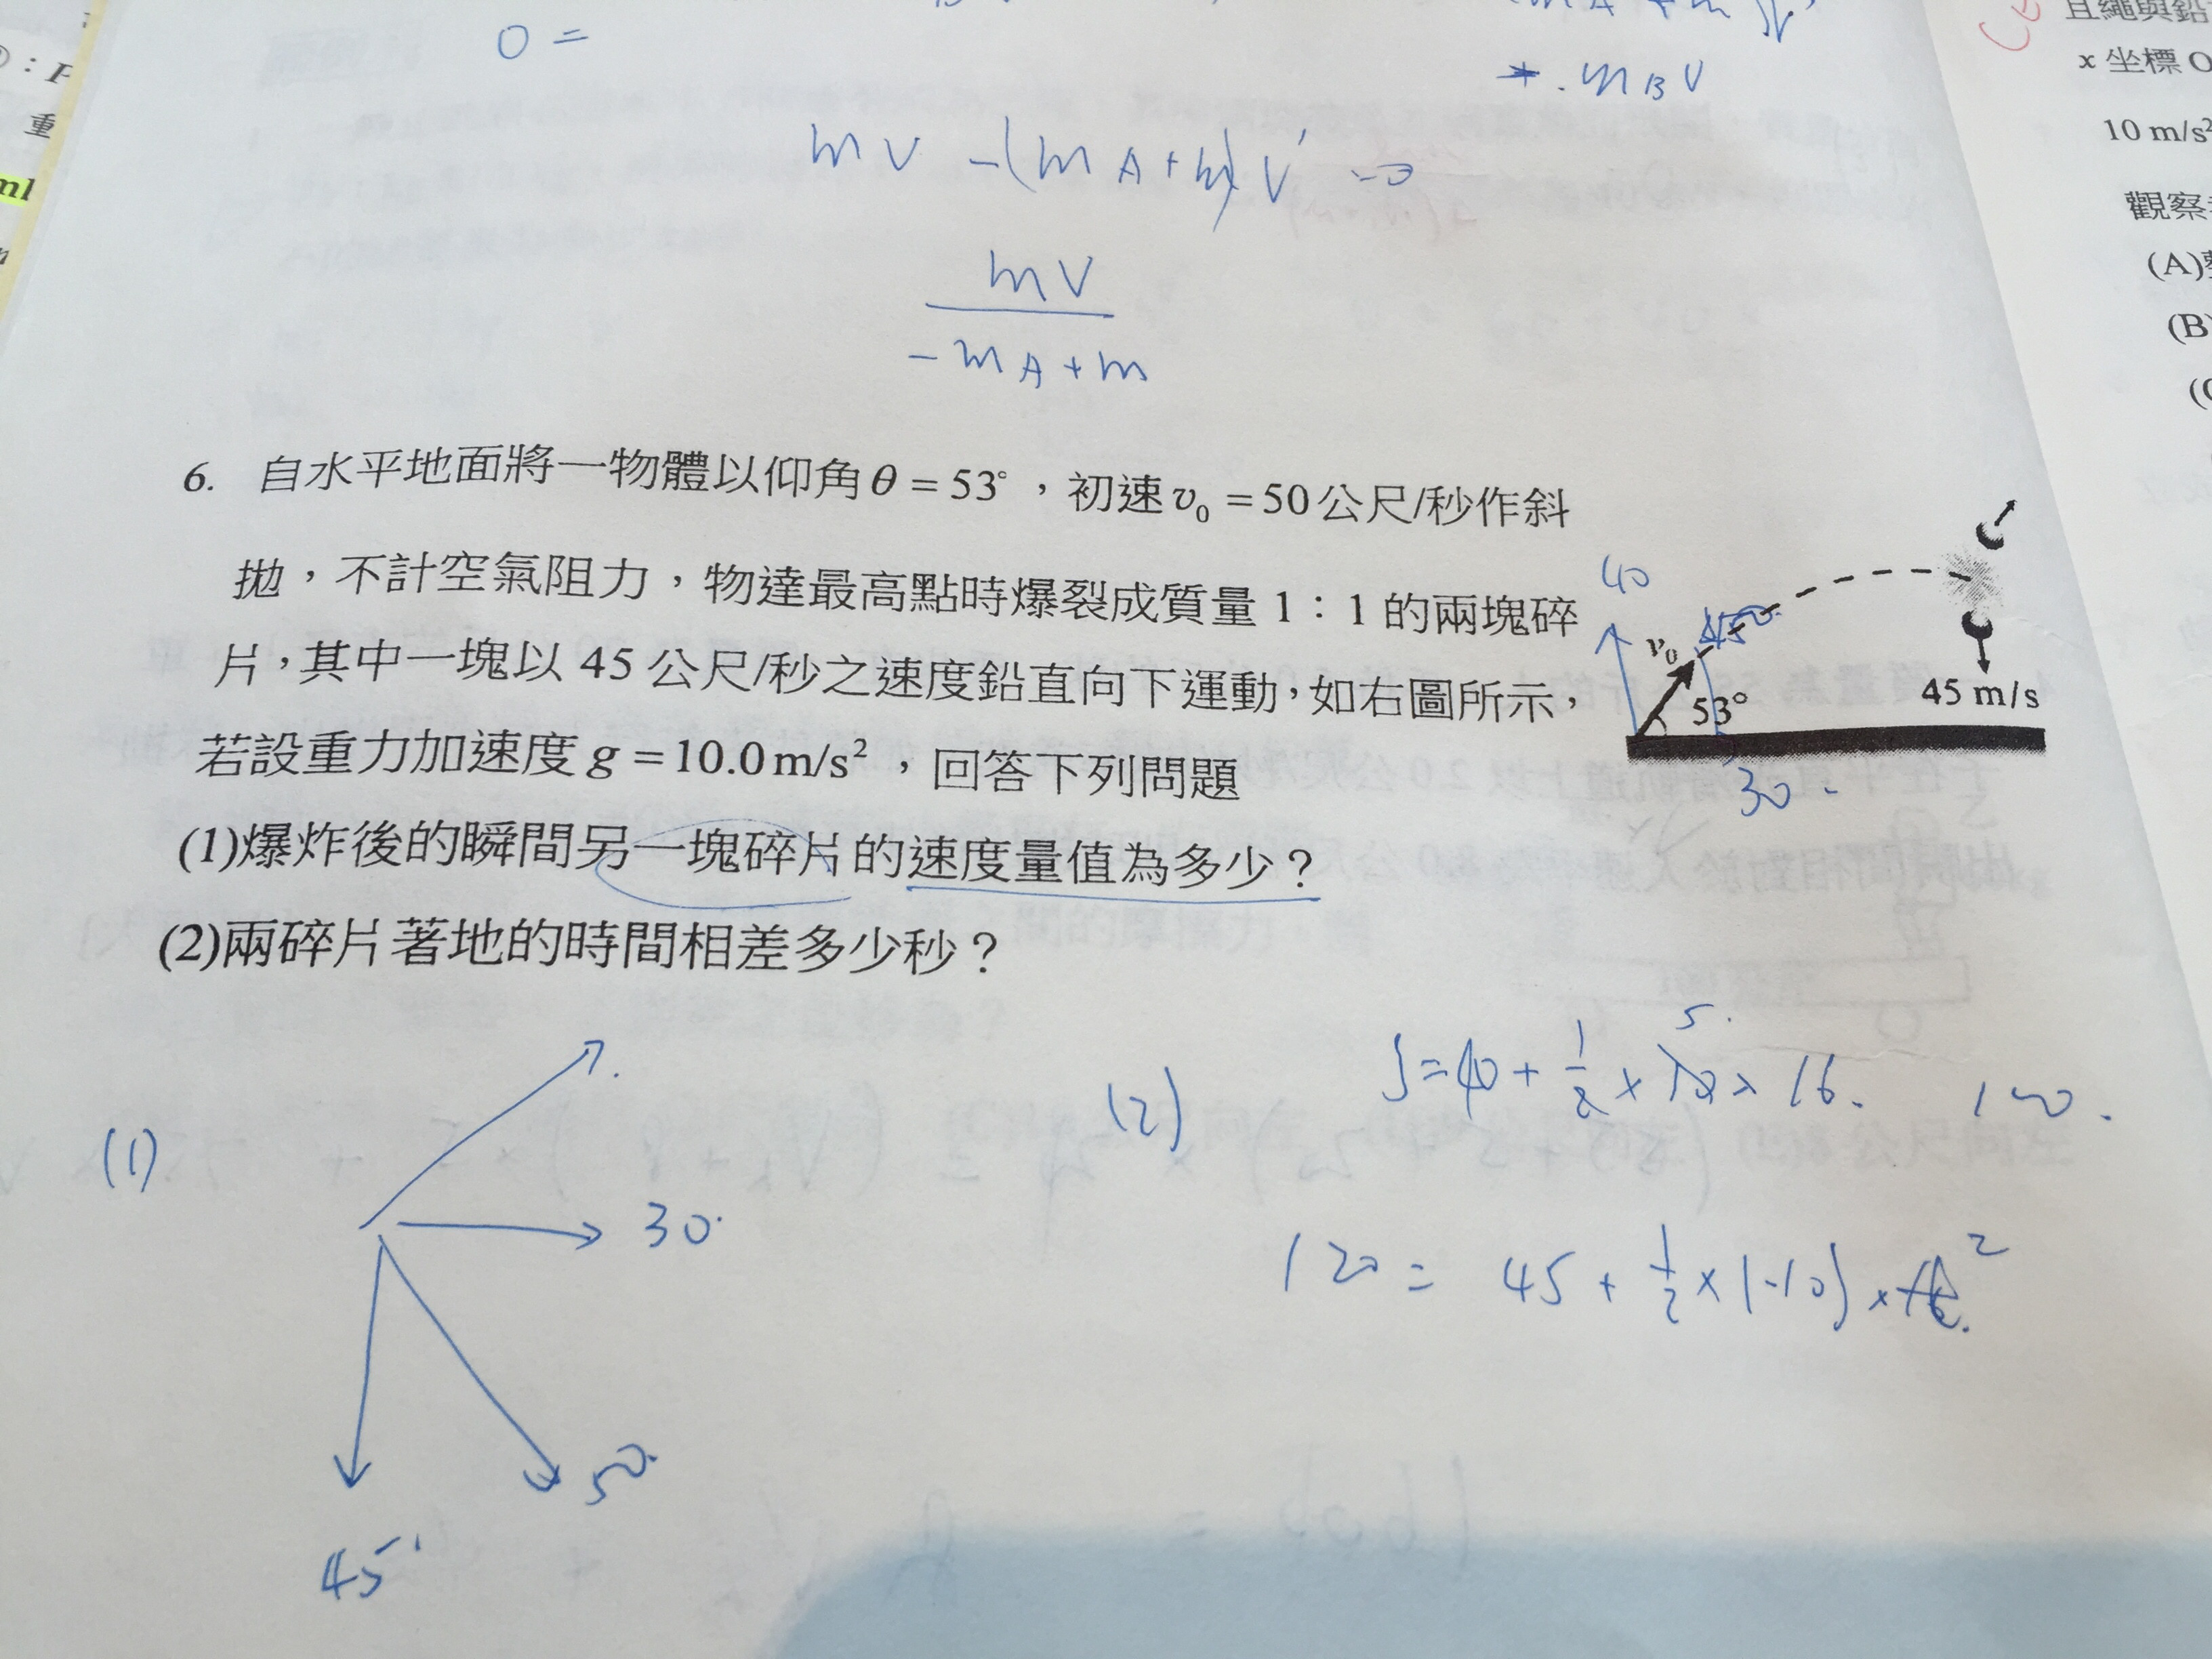 0 =
+ . mBV
mV -(mA+m)V' =0
mV
-mA+m
6. 自水平地面將一物體以仰角θ = 53°，初速v₀ = 50公尺/秒作斜
拋，不計空氣阻力，物達最高點時爆裂成質量 1：1 的兩塊碎
片，其中一塊以 45 公尺/秒之速度鉛直向下運動，如右圖所示，
若設重力加速度 g = 10.0 m/s²，回答下列問題
(1)爆炸後的瞬間另一塊碎片的速度量值為多少？
(2)兩碎片著地的時間相差多少秒？
40
v₀
53°
45 m/s
30
(1)
30
50
45
(2)
120 = 45 + 1/2 × (-10) ×
x 坐標
10 m/s²
觀察
(A)
(B)
重
ml